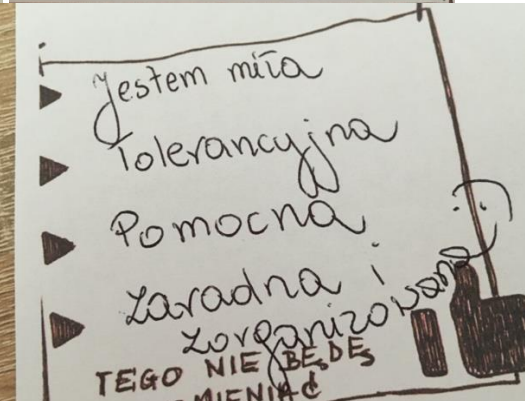 Jestem miła
Tolerancyjna
Pomocna
zaradna i
zorganizowana
TEGO NIE BĘDĘ
ZMIENIAĆ